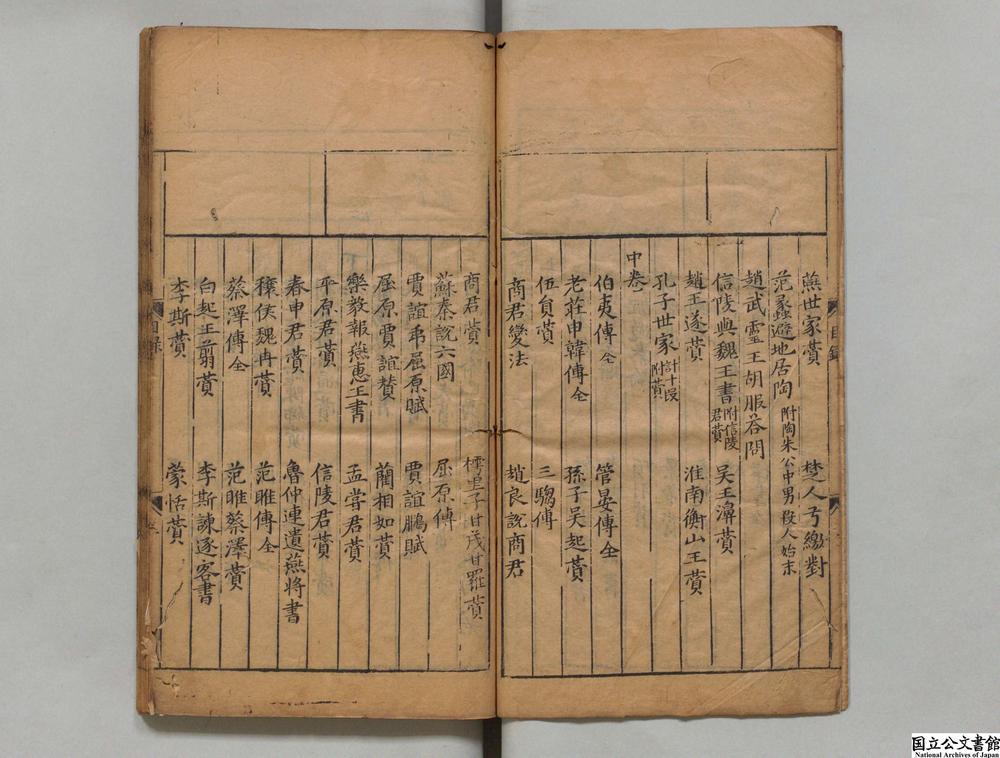 燕世家賛 楚人弓繳對
范蠡避地居陶 附陶朱公中男殺人始末
趙武霊王胡服荅問
信陵與魏王書 附信陵君賛 吴王濞賛
趙王遂賛 淮南衡山王賛
孔子世家 計十段附賛
中卷
伯夷傳 仝 管晏傳 仝
老莊申韓傳 仝 孫子吴起賛
伍員賛 三騶傳
商君變法 趙良説商君
商君賛 樗里子甘茂甘羅賛
蘇秦説六國 屈原傳
賈誼弔屈原賦 賈誼鵩賦
屈原賈誼賛 藺相如賛
樂毅報燕惠王書 孟嘗君賛
平原君賛 信陵君賛
春申君賛 魯仲連遺燕將書
穰侯魏冉賛 范睢傳 仝
蔡澤傳 仝 范睢蔡澤賛
白起王翦賛 李斯諫逐客書
李斯賛 蒙恬賛
目録
目録
国立公文書館
National Archives of Japan